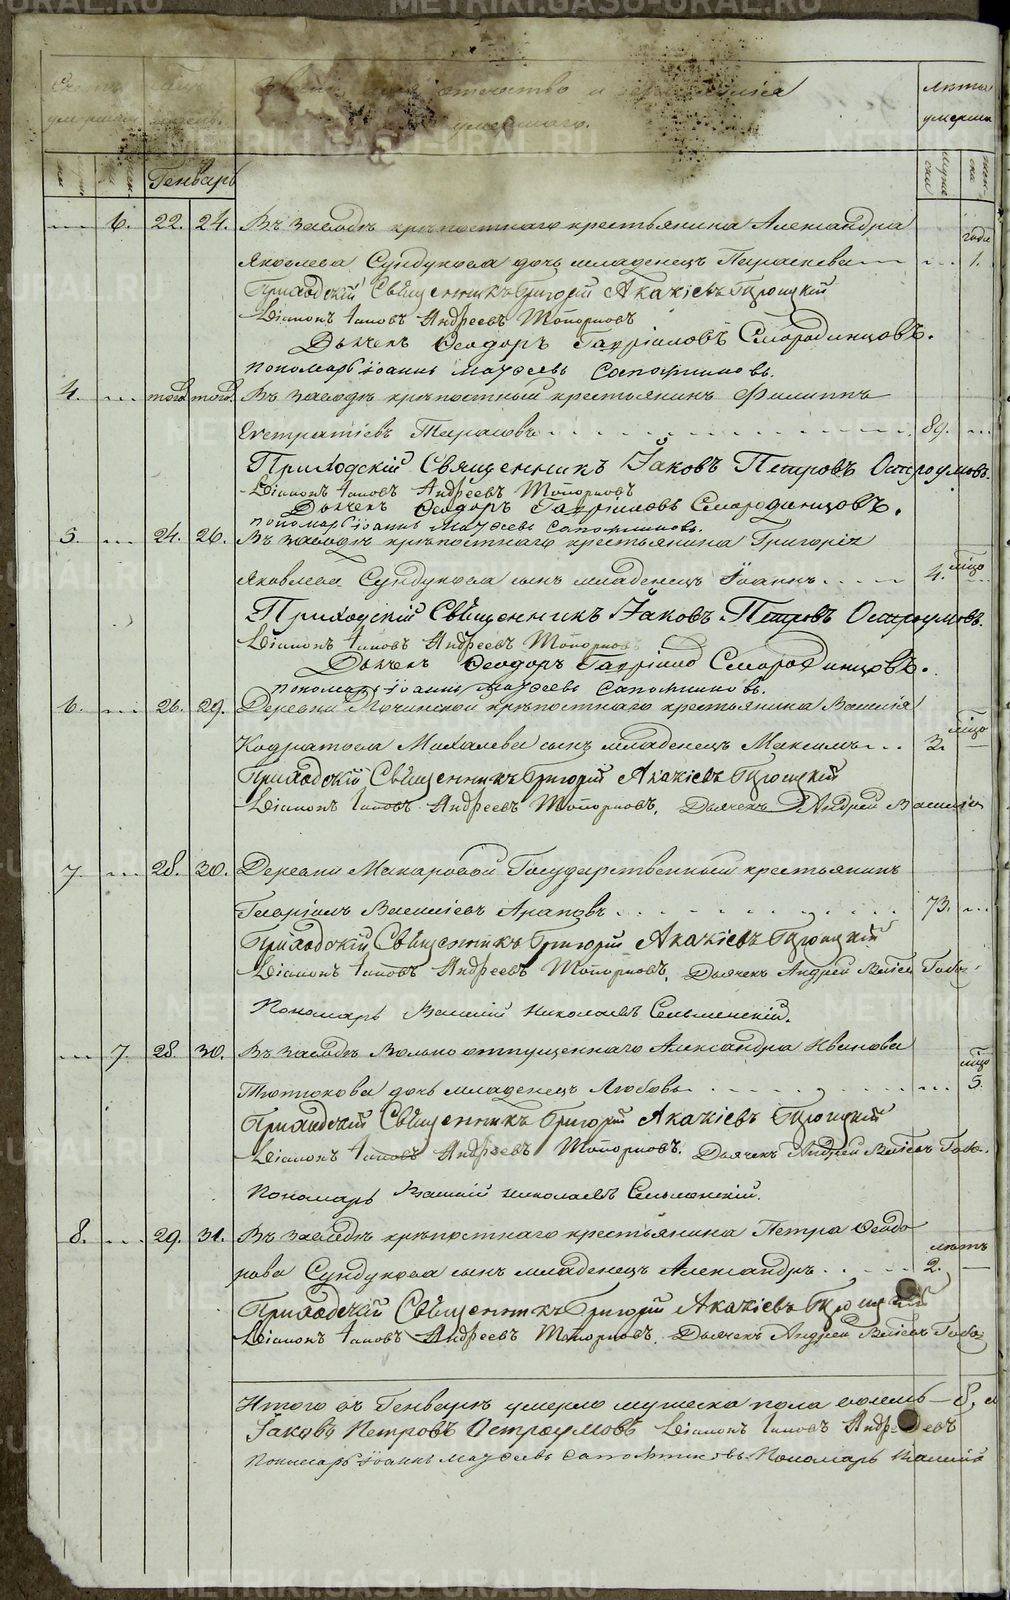 Званіе, имя, отчество и фамилія
умершаго.
лѣта
умерша
Генварь
6. 22. 24. Въ заводѣ крѣпостнаго крестьянина Александра
года
Яковлева Сундукова дочь младенецъ Параскева 1.
Приходскій Священникъ Григорій Акакіевъ Троицкій
Діаконъ Іаковъ Андреевъ Топорковъ
Дьячекъ Ѳеодоръ Гавріиловъ Смородинцовъ.
Пономарь Іоаннъ Матѳеевъ Сапожниковъ.
4. того того Въ заводѣ крѣпостный крестьянинъ Филиппъ
Евстратіевъ Тарасовъ 89.
Приходскій Священникъ Іаковъ Петровъ Остроумовъ.
Діаконъ Іаковъ Андреевъ Топорковъ
Дьячекъ Ѳеодоръ Гавріиловъ Смородинцовъ.
Пономарь Іоаннъ Матѳеевъ Сапожниковъ.
5. 24. 26. Въ заводѣ крѣпостнаго крестьянина Григорія
Яковлева Сундукова сынъ младенецъ Іоаннъ 4.
Приходскій Священникъ Іаковъ Петровъ Остроумовъ.
Діаконъ Іаковъ Андреевъ Топорковъ
Дьячекъ Ѳеодоръ Гавріилов Смородинцовъ.
Пономарь Іоаннъ Матѳеевъ Сапожниковъ.
6. 26. 29. Деревни крѣпостнаго крестьянина Василія
Кодратова Михалева сынъ младенецъ Максимъ 3.
Приходскій Священникъ Григорій Акакіевъ Троицкій
Діаконъ Іаковъ Андреевъ Топорковъ. Дьячекъ Андрей Василіев
7. 28. 30. Деревни Макаровой Государственный крестьянинъ
Василіевъ Араповъ 73.
Приходскій Священникъ Григорій Акакіевъ Троицкій
Діаконъ Іаковъ Андреевъ Топорковъ. Дьячекъ Андрей
Пономарь Василій Николаевъ Сельменскій.
7. 28. 30. Въ заводѣ вольно отпущеннаго Александра Иванова
Тютюкова дочь младенецъ Любовь 5.
Приходскій Священникъ Григорій Акакіевъ Троицкій
Діаконъ Іаковъ Андреевъ Топорковъ. Дьячекъ Андрей
Пономарь Василій Николаевъ Сельменскій.
8. 29. 31. Въ заводѣ крѣпостнаго крестьянина Петра Ѳеодо
лѣтъ
рова Сундукова сынъ младенецъ Александръ 2.
Приходскій Священникъ Григорій Акакіевъ Троицкій
Діаконъ Іаковъ Андреевъ Топорковъ. Дьячекъ Андрей
Итого въ Генварѣ умерло мужеска пола восемь — 8,
Іаковъ Петровъ Остроумовъ Діаконъ Іаковъ Андреевъ
Пономарь Іоаннъ Матѳеевъ Сапожниковъ. Пономарь Василій